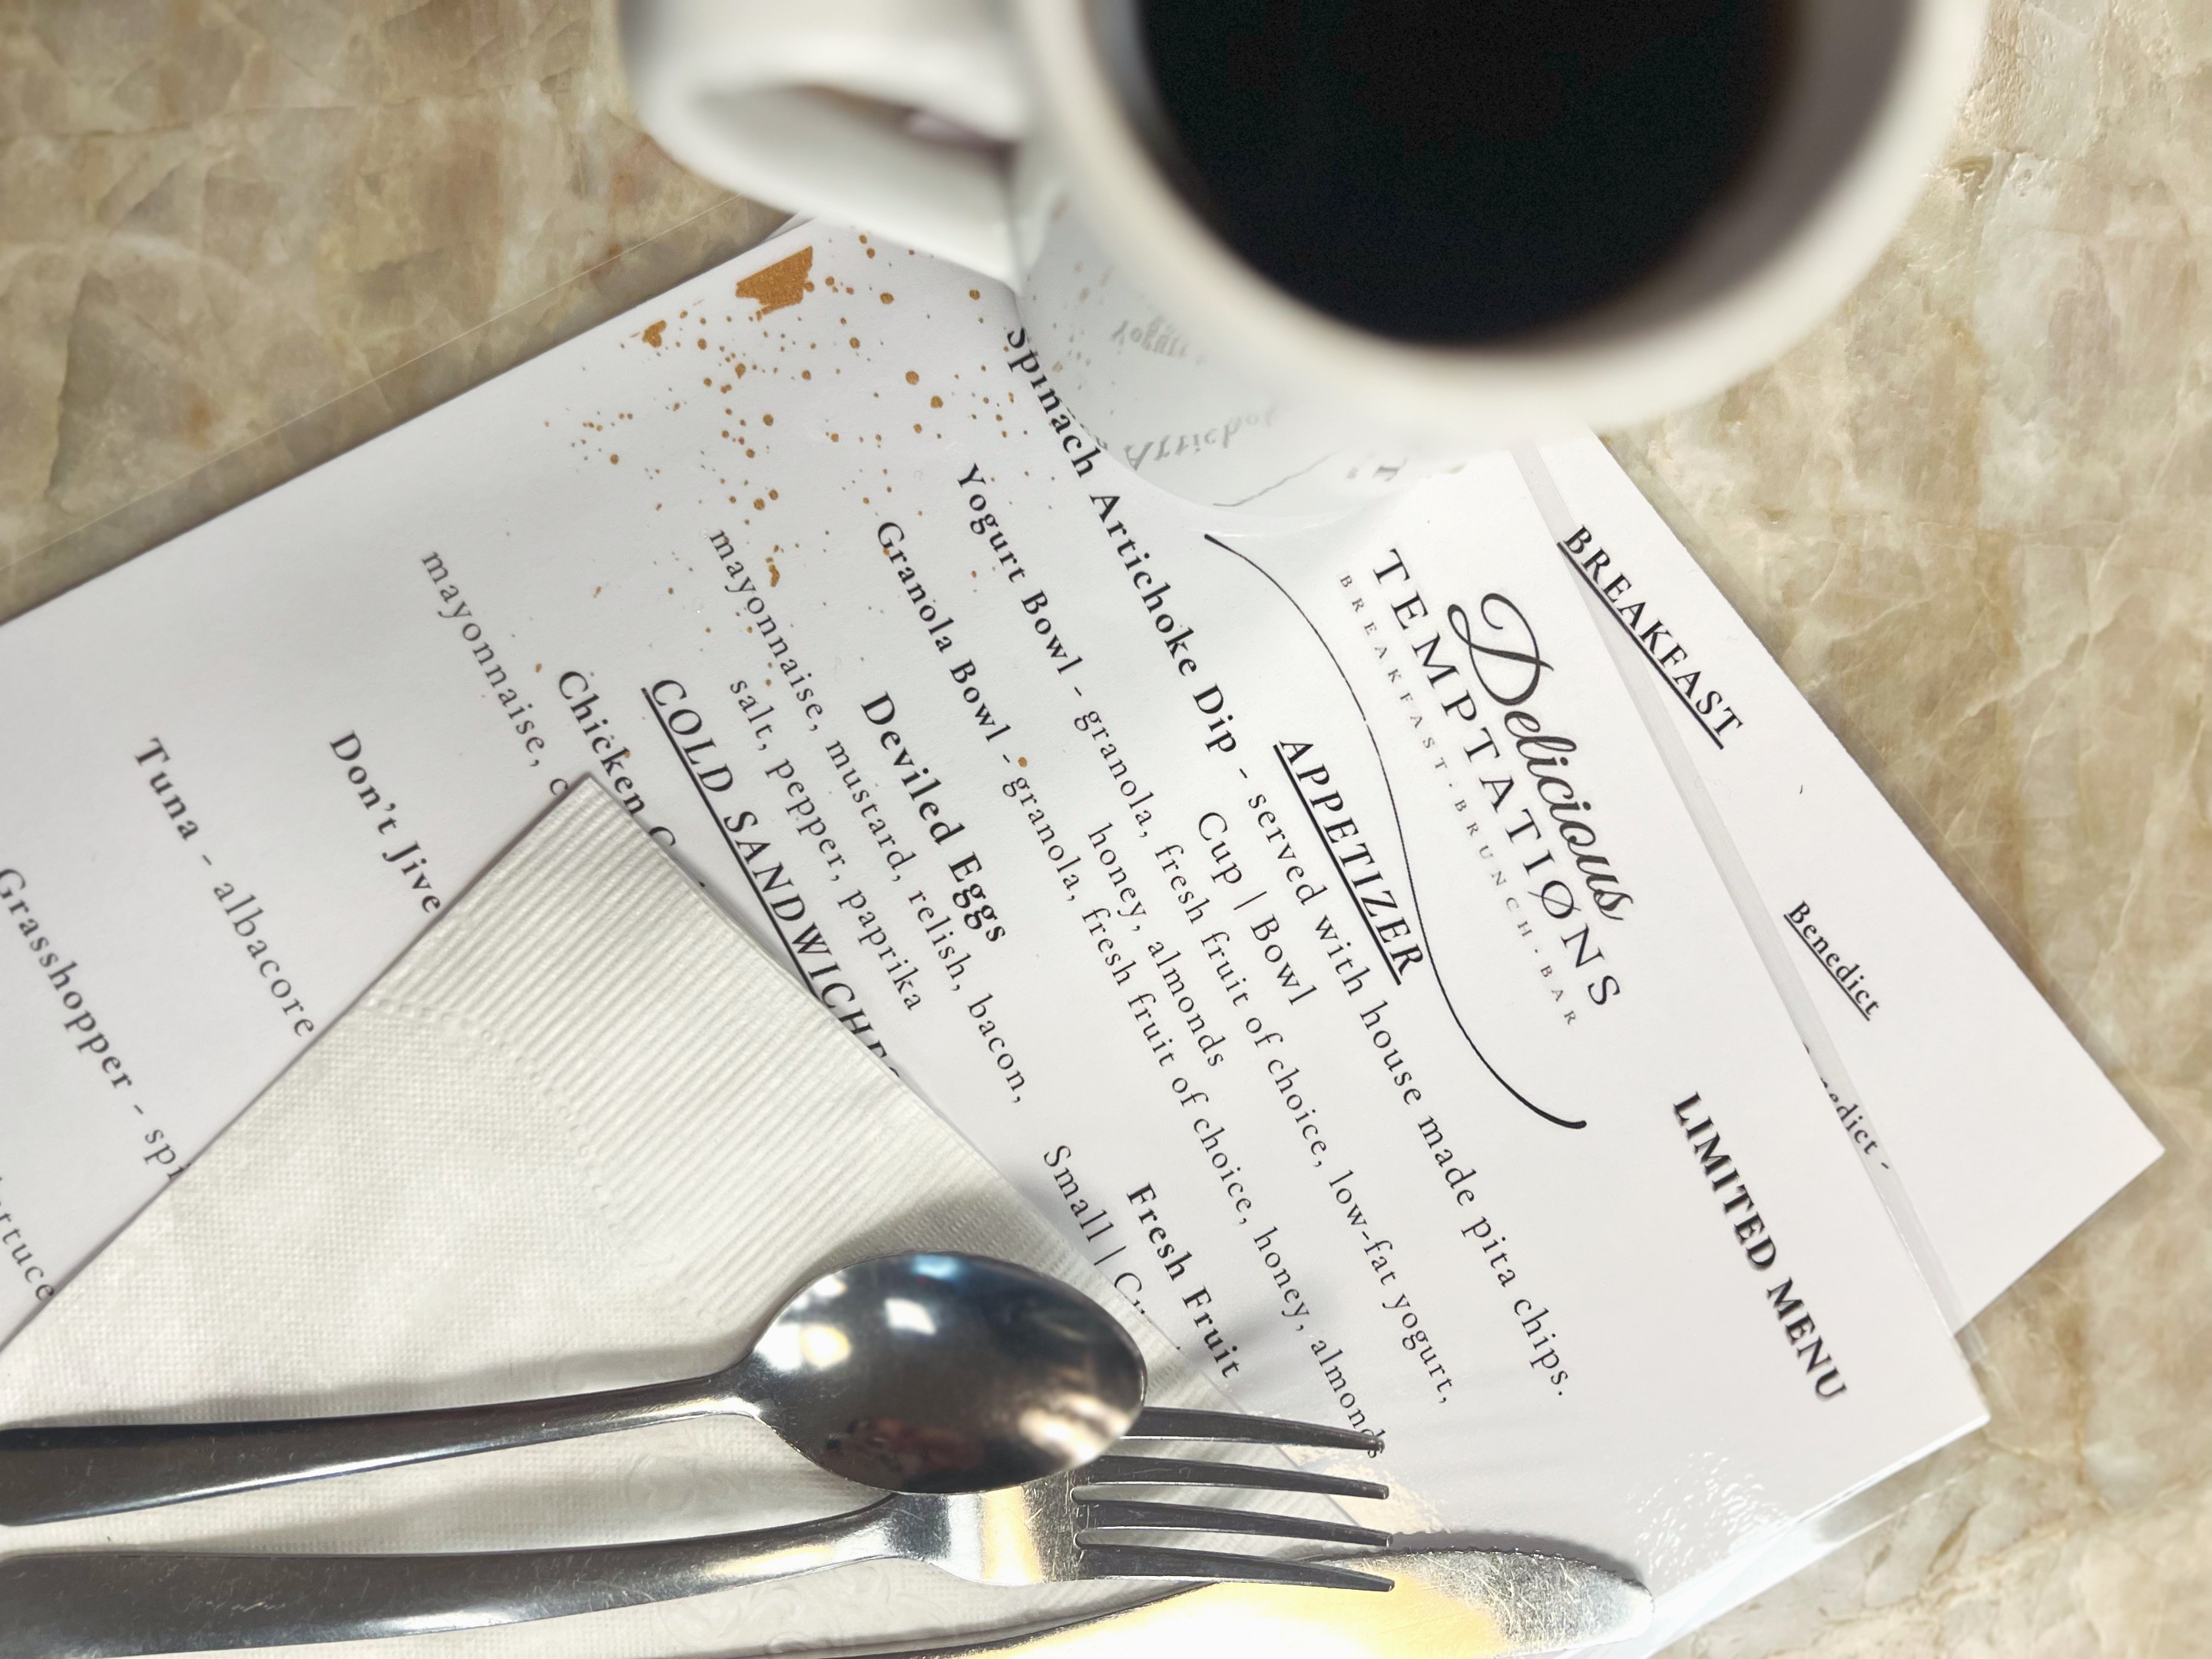 BREAKFAST
Benedict
LIMITED MENU
Delicious
TEMPTATIØNS
BREAKFAST·BRUNCH·BAR
APPETIZER
Spinach Artichoke Dip - served with house made pita chips.
Cup | Bowl
Yogurt Bowl - granola, fresh fruit of choice, low-fat yogurt,
honey, almonds
Granola Bowl - granola, fresh fruit of choice, honey, almonds
Deviled Eggs
mayonnaise, mustard, relish, bacon,
salt, pepper, paprika
Fresh Fruit
Small |
COLD SANDWICHES
Chicken
mayonnaise,
Don't Jive
Tuna - albacore
Grasshopper -